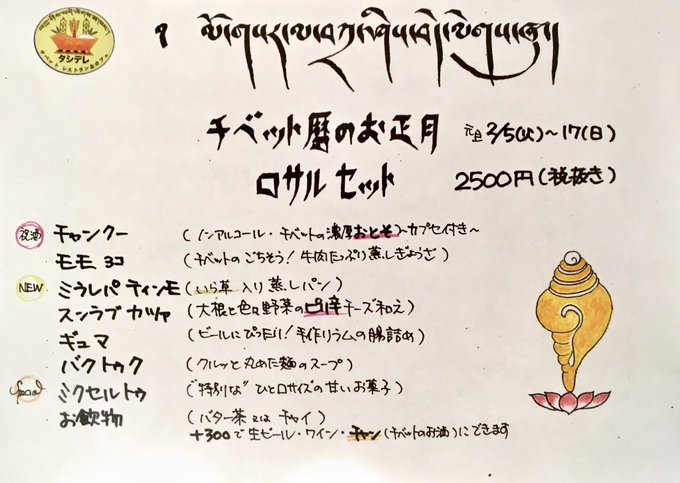 タシデレ
チベット レストラン&カフェ
チベット暦のお正月 元旦 2/5(火)〜17(日)
ロサル セット 2500円(税抜き)
祝酒 チャンクー (ノンアルコール・チベットの濃厚おとそ)〜カプセ付き〜
モモ ヨコ (チベットのごちそう! 牛肉たっぷり蒸しぎょうざ)
NEW ミラレパ ティンモ (いら草入り蒸しパン)
スンラブ カツァ (大根と色々野菜のピリ辛チーズ和え)
ギュマ (ビールにぴったり! 手作りラムの腸詰め)
バクトゥク (クルッと丸めた麺のスープ)
Special ミクセルトゥ ("特別な"ひと口サイズの甘いお菓子)
お飲物 (バター茶又はチャイ)
+300で生ビール・ワイン・チャン(チベットのお酒)にできます